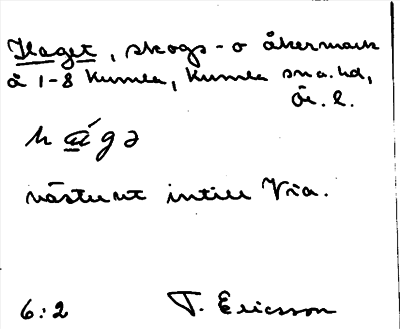 Haget, skogs- o åkermark
å 1-8 Kumla, Kumla sn o. hd,
Ör. l.
västerut intill Via.
6:2 T. Ericsson